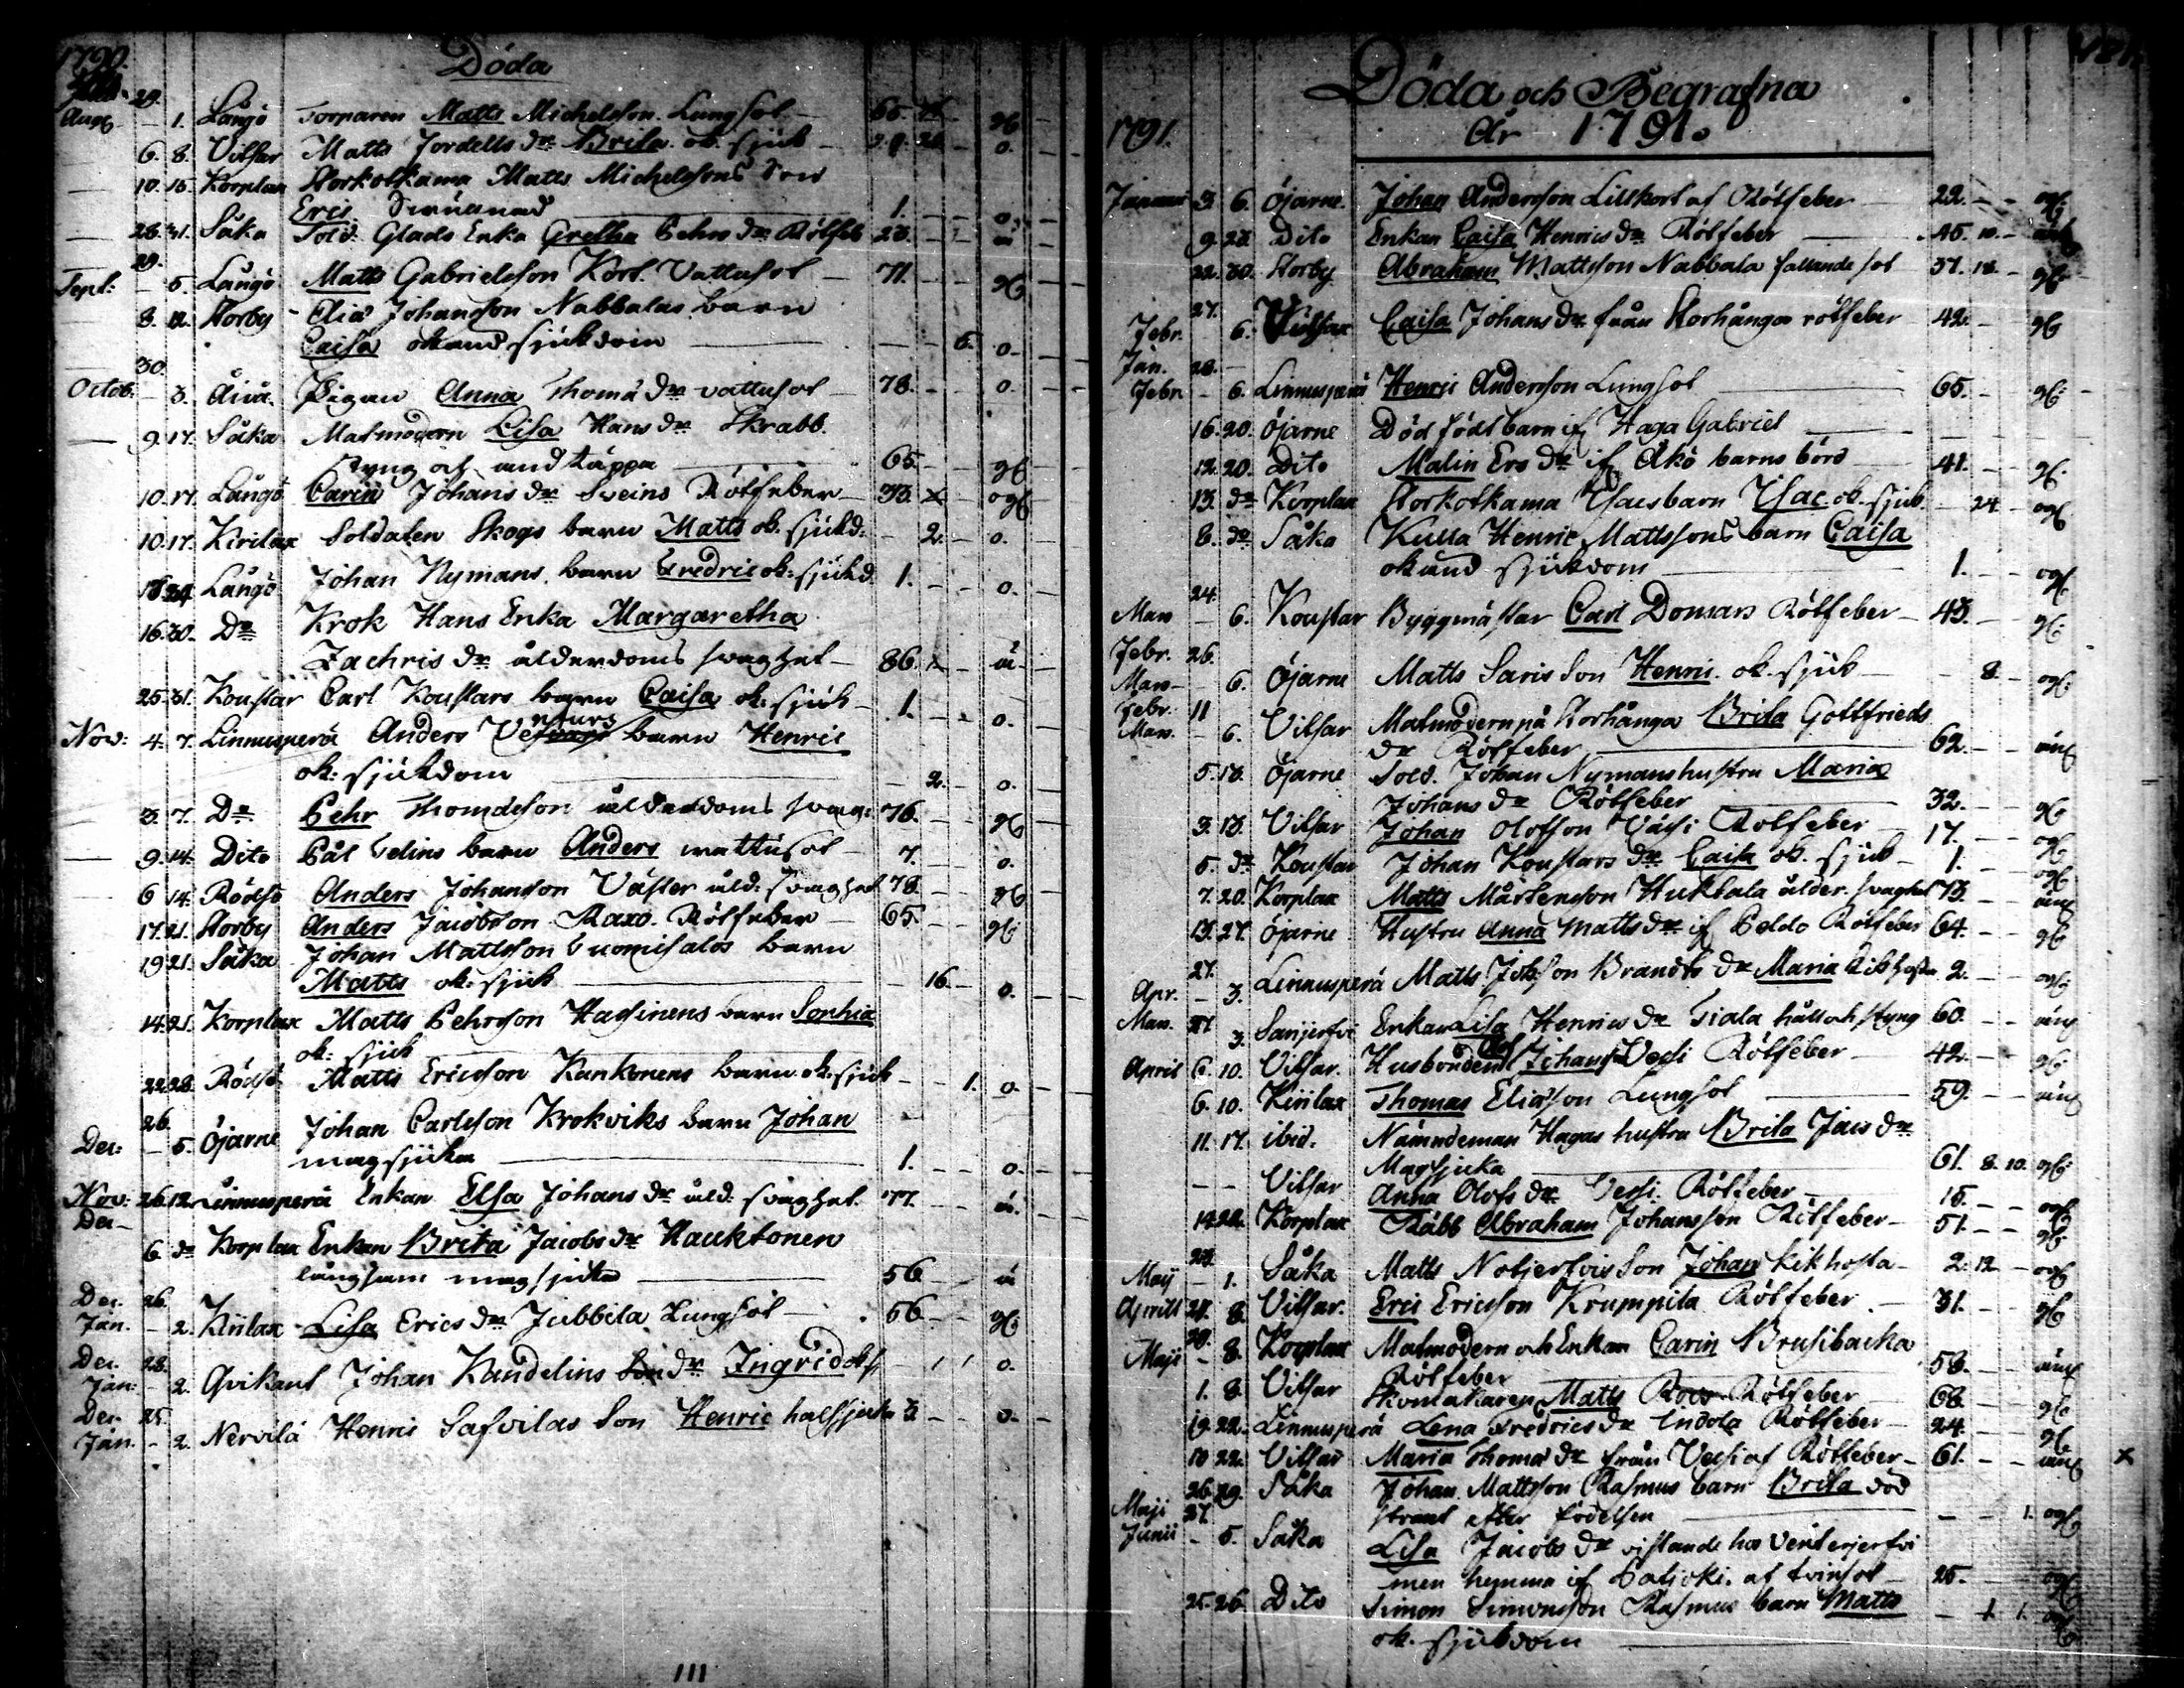 1790.
Döda
29.
Aug. - 1. Långö Torparen Matts Michelsson Lungsot - 65. gß
6. 8. Vilsar Matts Jordells dr Brita ok. sjuk - o.
10. 15. Korplax Storkolkama Matts Michelssons Son
Eric 1. - o.
28. 31. Såka Sold. Glads Enka Gretha Pehrs dr Rötfeb 28. - -
29.
Sept: - 5. Långö Matts Gabrielsson Kort. Vattusot - 71. - gß
8. 12. Storby Eliæ Johansson Nabbalas barn
Caisa okänd sjukdom - 6. o.
30.
Octob. - 3. Pigan Anna Thomæ dr vattusot - 78. - o.
9. 17. Såka Matmodern Lisa Hans dr Skrabb.
styng och andtäppa 65. - gß
10. 17. Långö Carin Johans dr Sveins Rötfeber 33. ogß
10. 17. Kirilax Soldaten Skogs barn Matts ok. sjukd: - 2. - o.
24. Långö Johan Nymans barn Fredric ok: sjukd. 1. - - o.
16. 30. Do Krok Hans Enka Margaretha
Zachris dr ålderdoms svaghet - 86.
25. 31. Koustar Carl Koustars barn Caisa ok: sjuk - 1. - - o.
Nov: 4. 7. Linnusperä Anders barn Henric
ok: sjukdom - 2. - o.
3. 7. Do Pehr Thomasson ålderdoms svag: 76. gß
9. 14. Dito Pål Felins barn Anders wattusot - 7. - o.
6 14. Rödsö Anders Johansson Väster åld: svaghet 78. - gß
17. 21. Storby Anders Jacobsson Raxo. Rötfeber - 65. - gß
19 21. Såka Johan Mattsson Tuomisalos barn
Matts ok: sjuk - 16. - o.
14. 21. Korplax Matts Pehrsson Hassinens barn Sophia
ok: sjuk
22. 28. Rödsö Matts Ericsson Kankonens barn ok. sjuk - 1. o.
26.
Dec: - 5. Öjarne Johan Carlsson Krokviks barn Johan
magsjuka 1. - - o.
Nov: 26. 12. Linnusperä Enkan Elsa Johans dr åld: svaghet. 77. - -
Dec -
6. do Korplax Enkan Brita Jacobs dr Hauktonen
långsam magsjuka 56
Dec. 26.
Jan. - 2. Kirilax Lisa Erics dr Jubbila Lungsot - 56 - gß
Dec. 28.
Jan: - 2. Qvikant Johan Kandelins dr Ingrid - 1 1 o.
Dec. 25.
Jan. - 2. Nervilä Henric Safvilas Son Henric halssjuka 3. - o.
111
Döda och Begrafna
År 1791.
1791.
Januari 3. 6. Öjarne. Johan Andersson Lillkort af Rötfeber 22. - - ogß
9. 23. Dito Enkan Caisa Henrics dr Rötfeber 45. 10. -
22. 30. Storby Abraham Mattsson Nabbala fallande sot 37. 18. gß
27.
Febr. 6. Caisa Johans dr från Storhånga rötfeber 42. - gß
Jan. 28.
Febr. - 6. Linnusperä Henric Andersson Lungsot 65. - gß
16. 20. Öjarne Död född barn if Haga Gabriel
12. 20. Dito Malin Ers dr if Åkö barns börd 41. - gß
13. do Korplax Storkolkama Isacs barn Isac ok. sjuk - 24 - ogß
8. do Såka Kulla Henric Mattssons barn Caisa
okänd sjukdom 1. - - ogß
24.
Mars - 6. Koustar Byggmästar Carl Domars Rötfeber - 43. - gß
Febr. 26.
Mars - 6. Öjarne Matts Saris Son Henric ok. sjuk - 8. - ogß
Febr. 11
Mars. - 6. Vilsar Matmodern på Storhånga Brita Gottfrieds
dr Rötfeber 62. - -
5. 13. Öjarne Sold. Johan Nymans hustru Maria
Johans dr Rötfeber 32. - gß
3. 13. Vilsar Johan Olofsson Väcsi Rotfeber 17. - ogß
5. do Koustar Johan Koustars dr Caisa ok. sjuk - 1. - ogß
7. 20. Korplax Matts Mårtensson Hukkala ålder. svaghet 73. -
13. 27. Öjarne Hustru Anna Matts dr if Peldo Rötfeber 64. - - gß
27.
Apr. - 3. Linnusperä Matts Johsson Brandts dr Maria kikhosta 2. - ogß
Mars. 27. 3. Sanjerfvi Enkan Lisa Henrics dr Tiala håll och styng 60. - -
April 6. 10. Vilsar. Husbonden Johans Vecsi Rötfeber - 42. - gß
6. 10. Kirilax Thomas Eliæsson Lungsot 59. - -
11. 17. ibid. Nämndeman Hagas hustru Brita Jacs dr
Magsjuka 61. 8. 10. gß.
- - Vilsar Anna Olofs dr Vecsi. Rötfeber - 15. - ogß
14. 22. Korplax Räbb Abraham Johansson Rötfeber - 51. - gß
28.
Maij - 1. Såka Matts Notjerfvis Son Johan kikhosta - 2. 12. - ogß
Aprill 24. 8. Vilsar. Eric Ericsson Krumpila Rötfeber - 31. - gß
29.
Maji - 8. Korplax Matmodern och Enkan Carin Brusibacka
Rötfeber 58. - -
1. 8. Vilsar Skomakaren Matts Roos Rötfeber 68. - gß.
19. 22. Linnusperä Lena Fredrics dr Indola Rötfeber 24. - gß
10 22. Vilsar Maria Thomæ dr från Vecsi af Rötfeber - 61. - - x
26. 29. Såka Johan Mattsson Rasmus barn Brita död
strant efter födelsen - - 1. ogß
Maji 27.
Junii - 5. Såka Lisa Jacobs dr vistande hos Venterjerfvi
men hemma if Patjoki. af tvinsot 25. ogß
25. 26. Dito Simon Simonsson Rasmus barn Matts - 1. 1. ogß
ok. sjukdom